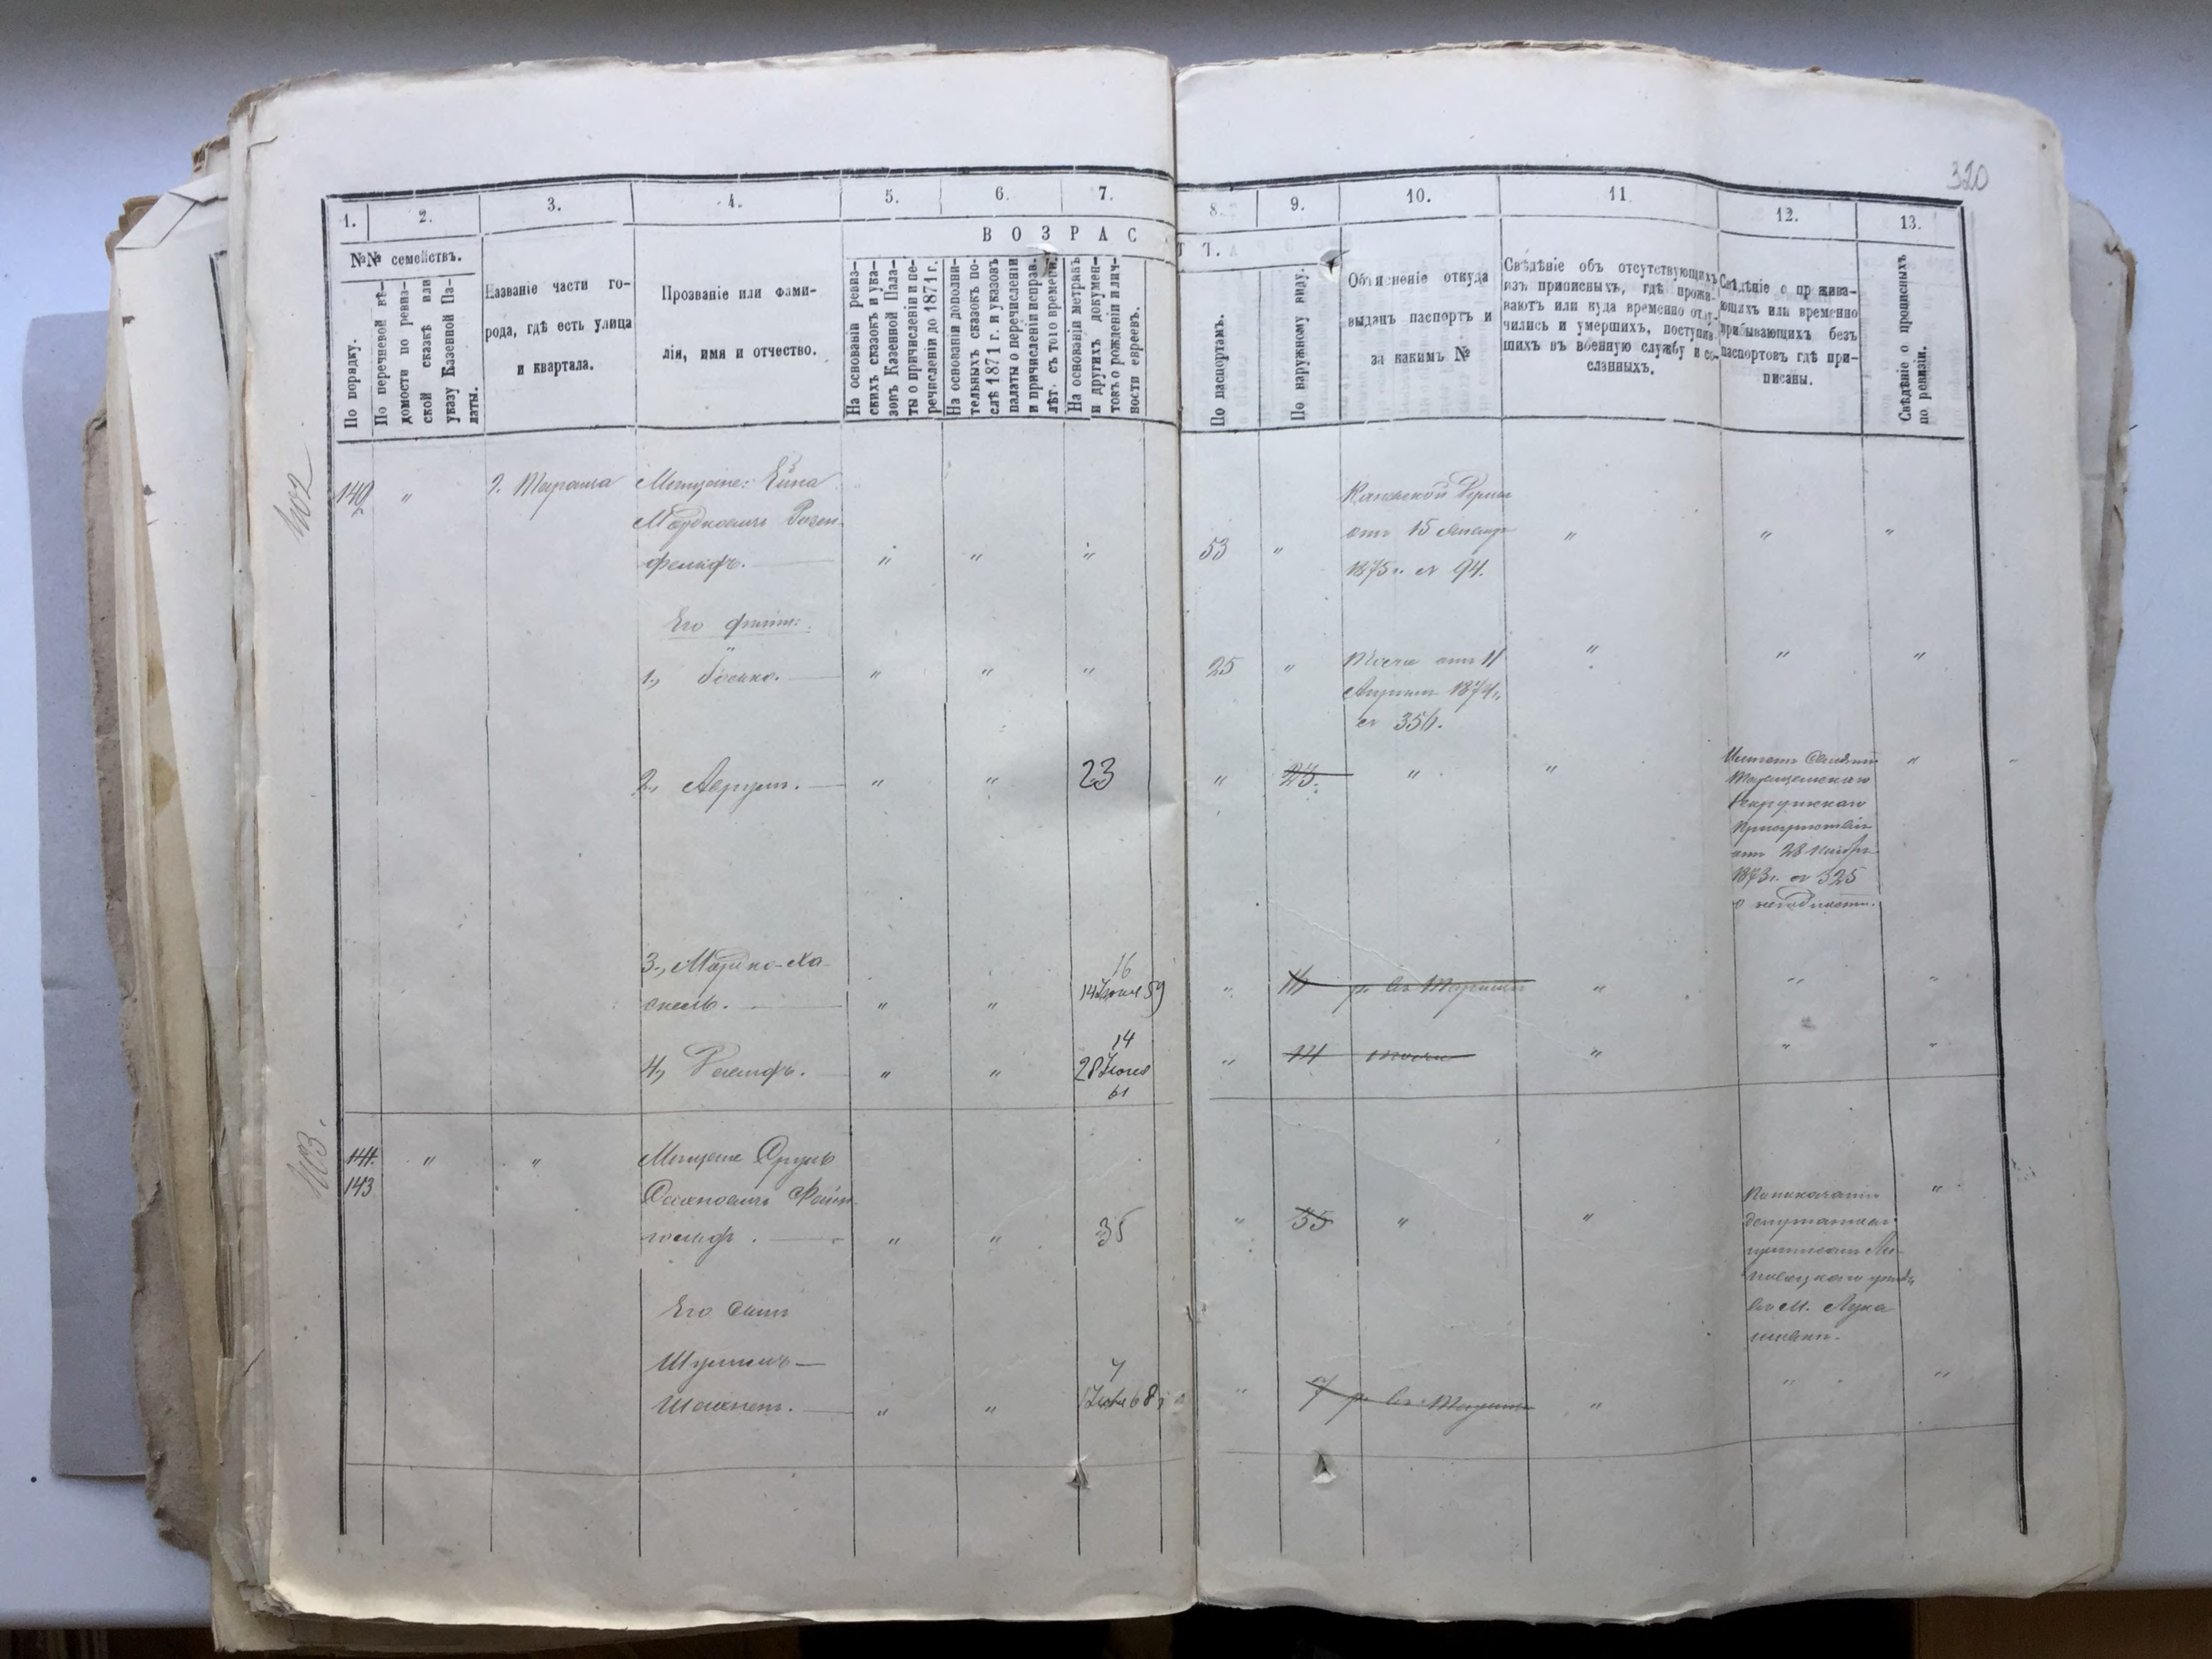 320
1.
2.
3.
4.
5.
6.
7.
8.
9.
10.
11
12.
13.
№№ семействъ.
ВОЗРАС
ТЪ.
По порядку.
По перечневой вѣ-
домости по ревиз-
ской сказкѣ или
указу Казенной Па-
латы.
Названіе части го-
рода, гдѣ есть улица
и квартала.
Прозваніе или фами-
лія, имя и отчество.
На основаніи ревиз-
скихъ сказокъ и ука-
зовъ Казенной Пала-
ты о причисленіи и пе-
речисленіи до 1871 г.
На основаніи дополни-
тельныхъ сказокъ по-
слѣ 1871 г. и указовъ
палаты о перечисленіи
и причисленіи исправ.
лѣт. съ того времени.
На основаніи метрикъ
и другихъ докумен-
товъ о рожденіи и лич-
ности евреевъ.
По паспортамъ.
По наружному виду.
Объясненіе откуда
выданъ паспортъ и
за какимъ №
Свѣдѣніе объ отсутствующихъ
изъ приписныхъ, гдѣ прожи-
ваютъ или куда временно отлу-
чились и умершихъ, поступив-
шихъ въ военную службу и со-
сланныхъ.
Свѣдѣніе о прожива-
ющихъ или временно
прибывающихъ безъ
паспортовъ гдѣ при-
писаны.
Свѣдѣніе о прописныхъ
по ревизіи.
1102
г. Тараща
Мѣщане:
Мордковичъ Розен-
фельдъ.
53
отъ 15
1875 г. № 94.
Его
1., Іосько.
25
Тоже отъ 11
Апрѣля 1874
№ 356.
2.,
23
23.
Таращанскаго
отъ 28 Ноября
1873 г. № 325
3., Мордко-Ха-
скель.
16
14 Іюня 59
16
р. въ Таращѣ
4.,
14
28 Іюня
61
14
тоже
1103.
141.
143
Мѣщане Сруль
35
35
въ м. Лука
шевки.
Его сынъ
Шулимъ
7
68
7
р. въ Таращѣ